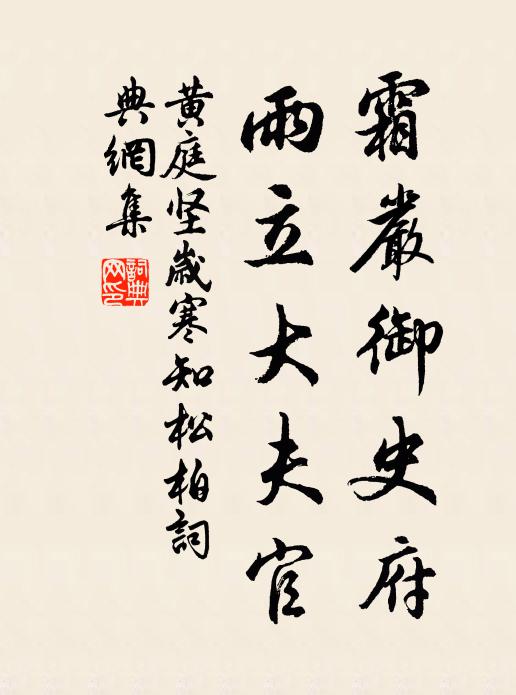 霜嚴御史府
雨立大夫官
黃庭坚歲寒知松柏詞
典網集
詞典
网印